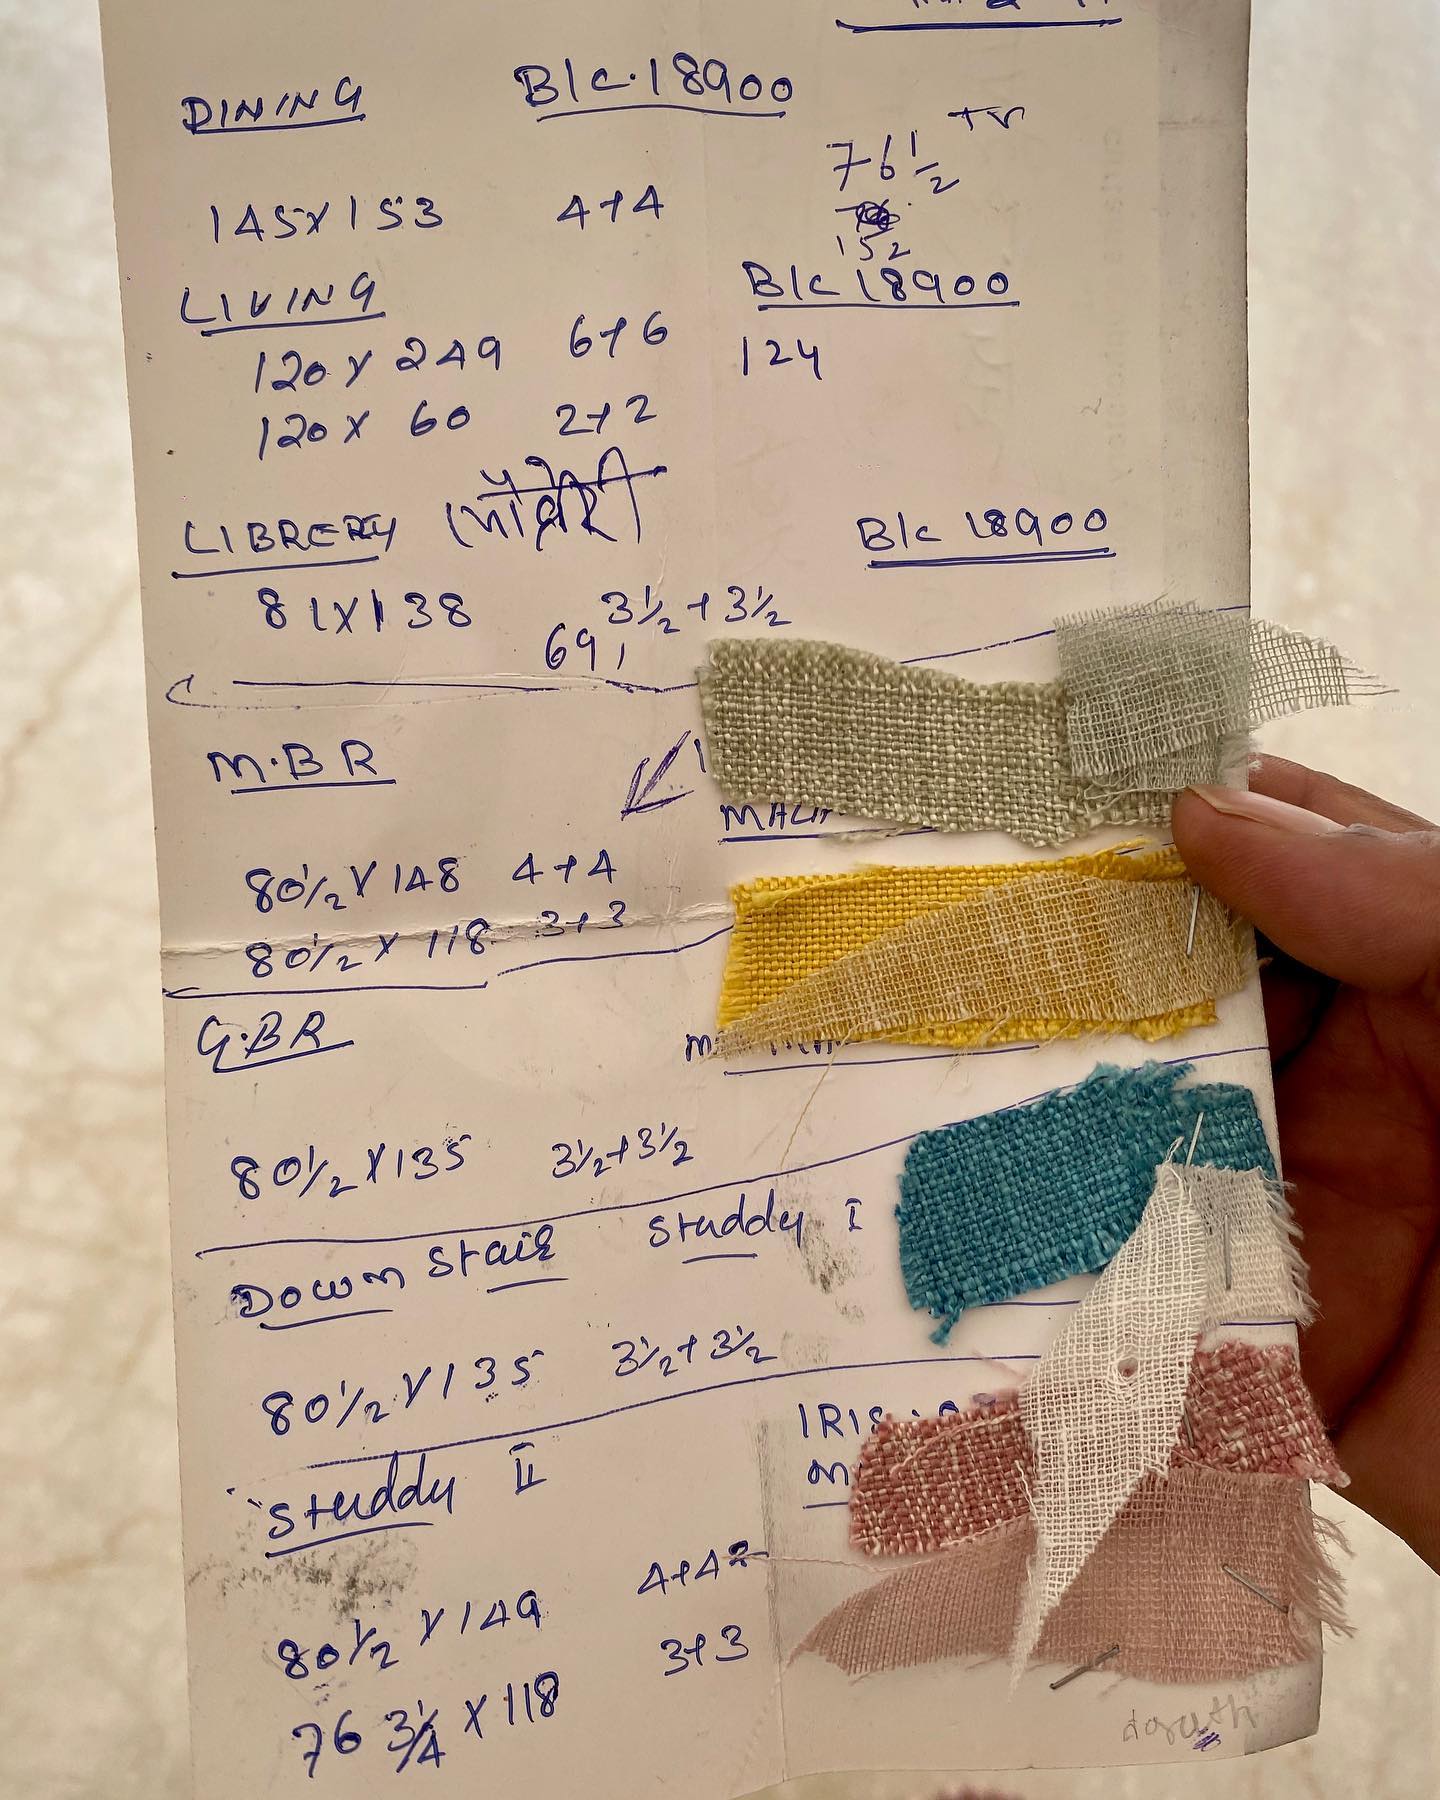 DINING B/C.18900
TV
76 1/2
145X153 4+4
152
LIVING B/C 18900
120 X 249 6+6 124
120 X 60 2+2
LIBRERY B/C 18900
81X138 3 1/2 + 3 1/2
69,
M.B R
80 1/2 X 148 4+4
80 1/2 X 118 3+3
G.BR
80 1/2 X 135 3 1/2 + 3 1/2
Down Stair Studdy I
80 1/2 X 135 3 1/2 + 3 1/2
IRIS
Studdy II
80 1/2 X 149 4+4
76 3/4 X 118 3+3